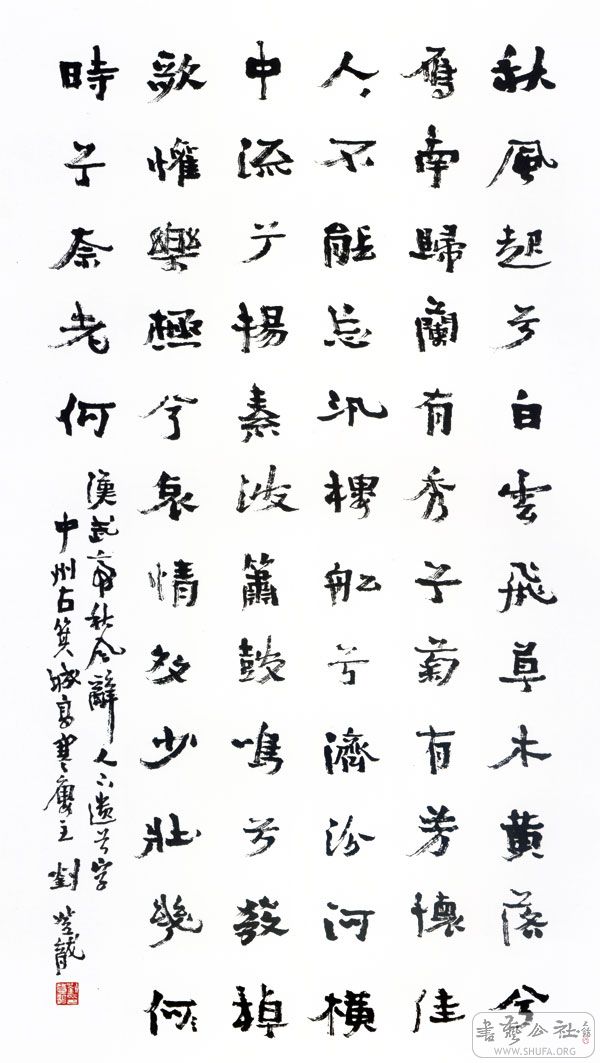 秋風起兮白雲飛草木黄落兮
雁南歸蘭有秀兮菊有芳懷佳
人不能忘汎樓舩兮濟汾河横
中流兮揚素波簫鼓鳴兮發棹
歌懽樂極兮哀情多少壯幾何
時兮奈老何
漢武帝秋風辭 人下遺兮字
中州古箕城寒廔主 劉龍
書藝公社
WWW.SHUFA.ORG